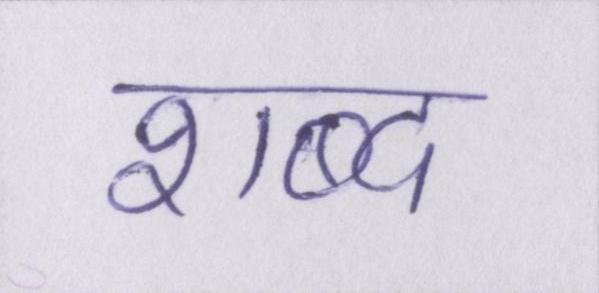 शब्द